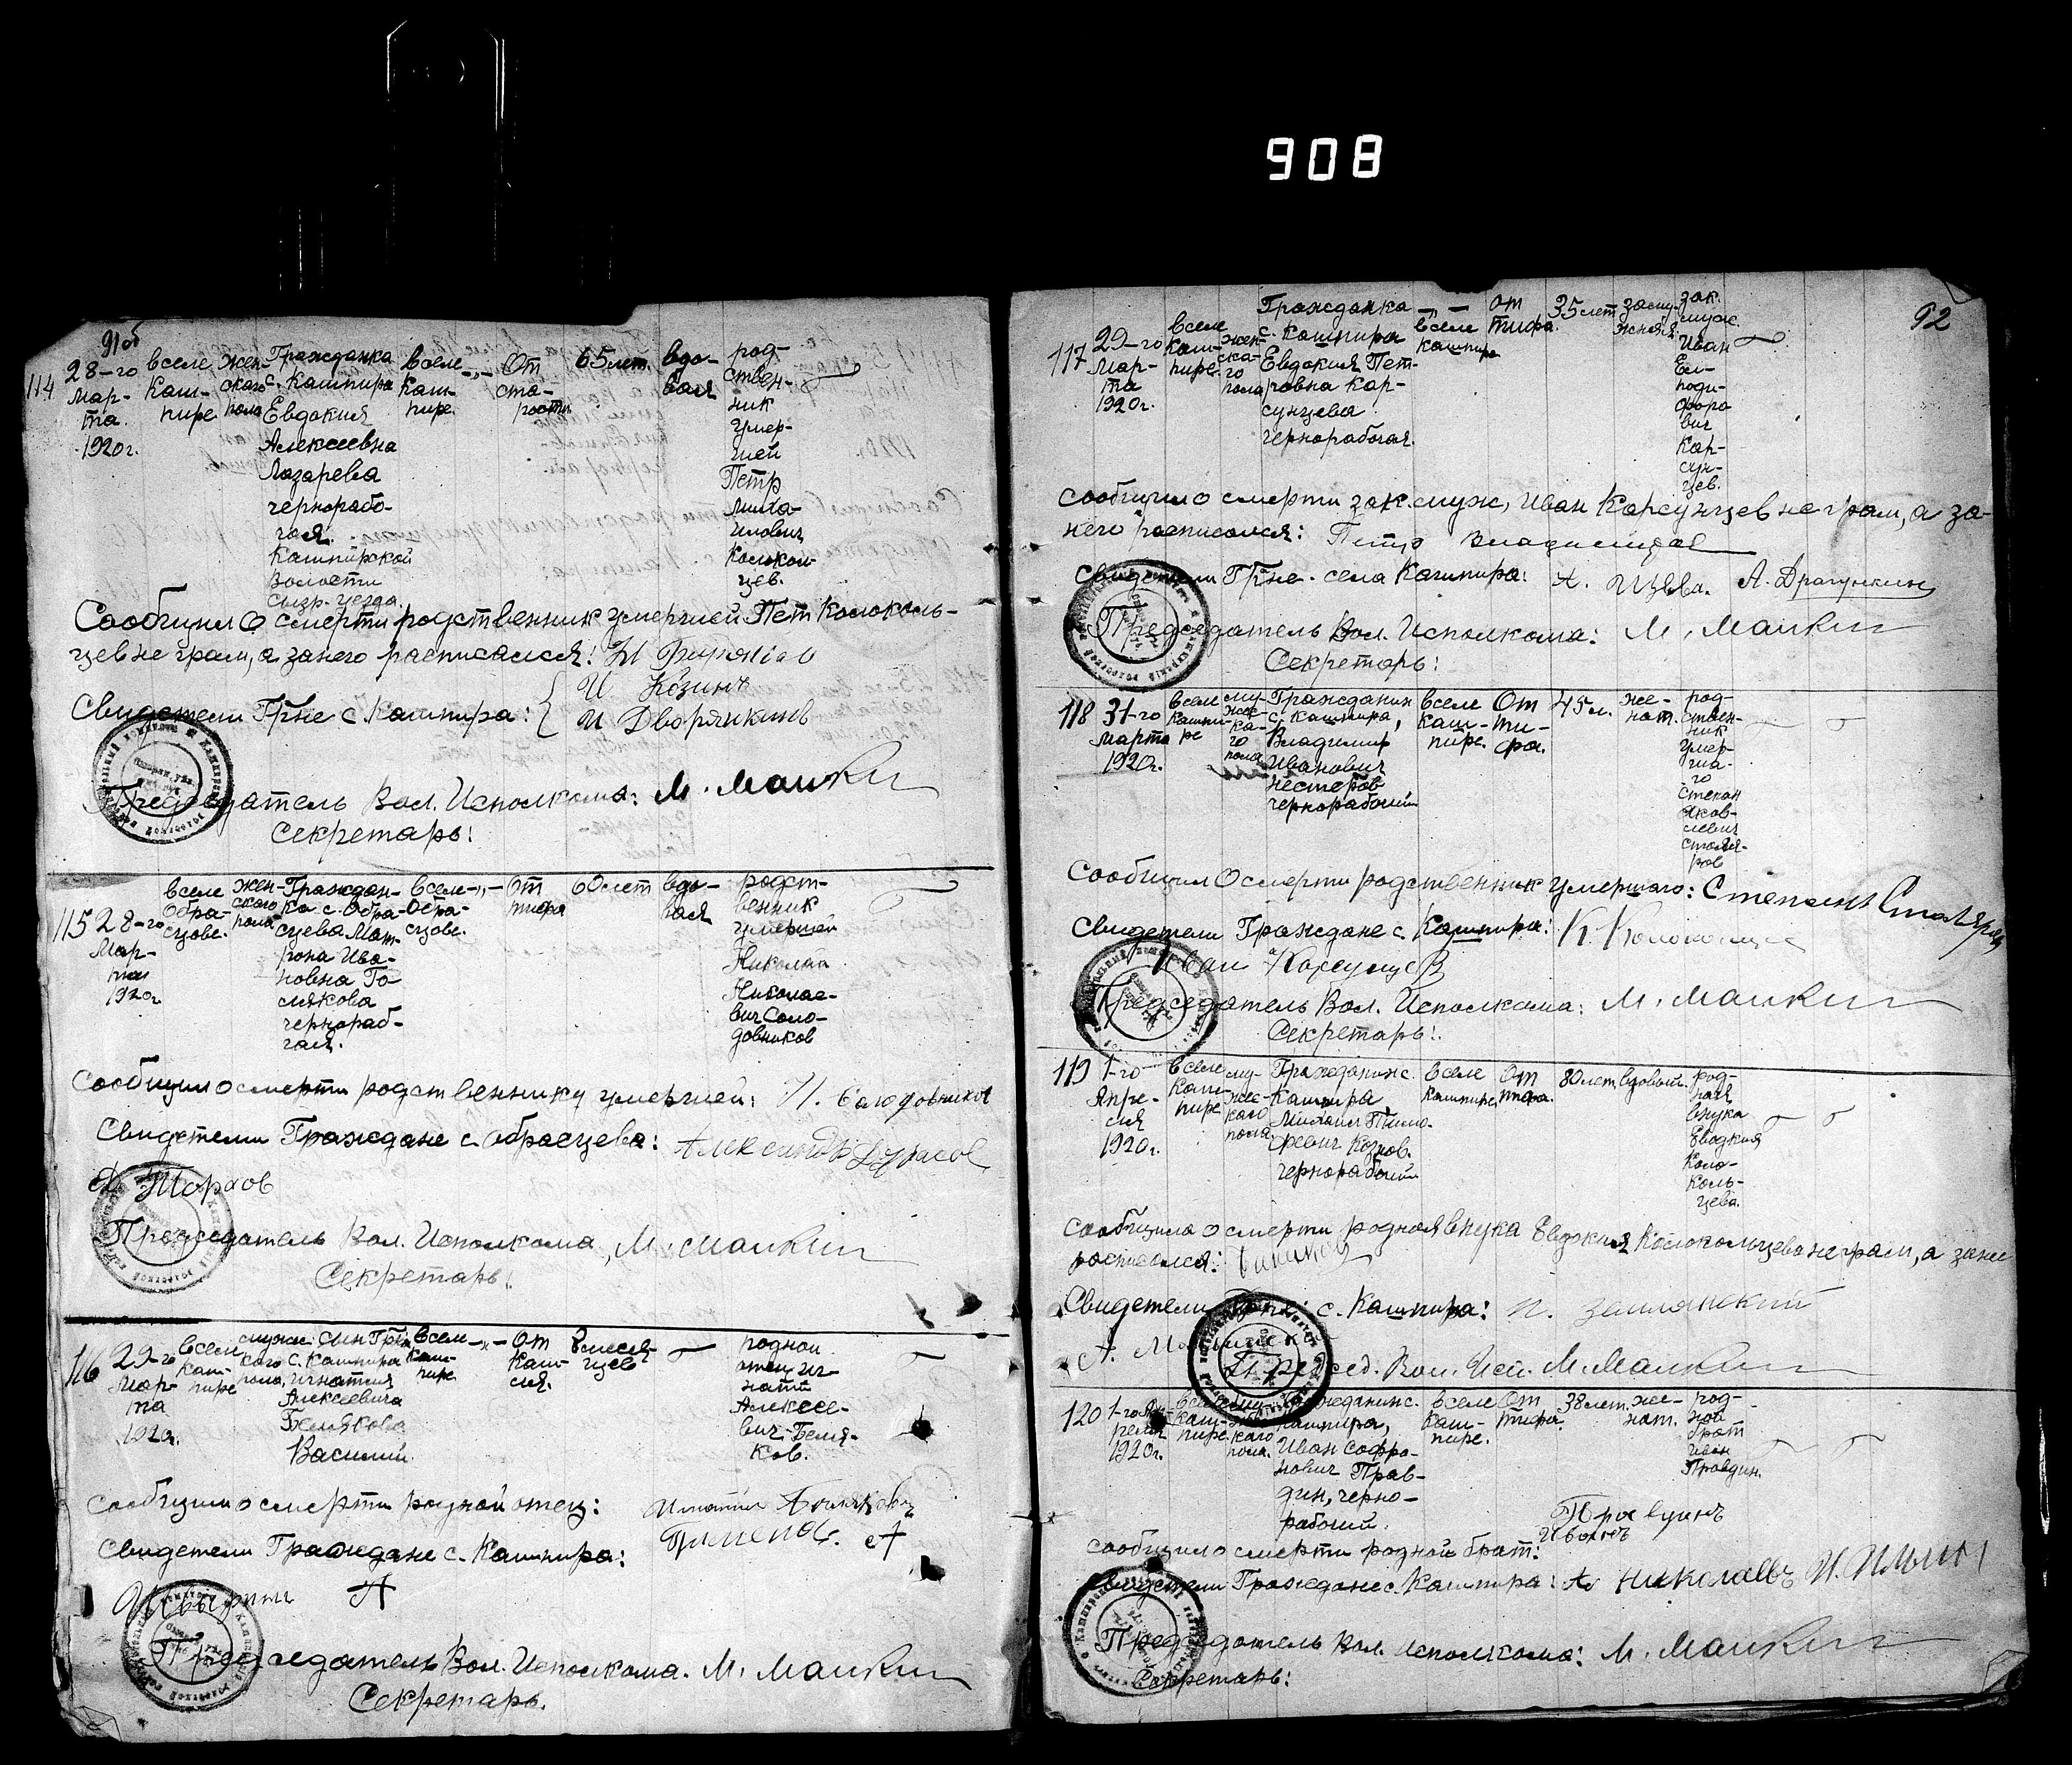 908
91об
114
28-го Мар-та 1920г.
вселе Каш-пире
жен-ского пола
Гражданка с. Кашпира Евдокия Алексеевна Лазарева чернорабо-чая. Кашпирской Волости Сызр. уезда.
вселе Каш-пире
-„-
От ста-рости
65 лет.
вдо-вая
род-ствен-ник умер-шей Петр Михаи-лович Колокол-цев.
Сообщил о смерти родственник умершей Пет Колоколь-
цев не грам, а за него расписался:
Свидетели Гр-не с Кашпира:
И Козинъ
И Дворянкинъ
Председатель Вол. Исполкома: М. Малкин
Секретарь:
115
28-го Мар-та 1920г.
вселе Обра-сцове.
жен-ского пола
Граждан-ка с. Обра-сцева Мат-рона Ива-новна Го-слякова чернораб-чая.
вселе Обра-сцове.
-„-
От тифа
60 лет
вдо-вая
родст-венник умершей Николай Николае-вич Соло-довников
Сообщил о смерти родственнику умершей: Н. Солодовников
Свидетели Граждане с Образцева: Александр
Председатель Вол. Исполкома, М. Малкин
Секретарь:
116
29-го Мар-та 1920г.
вселе Каш-пире
мужс-кого пола,
сын Гр-на с. Кашпира Игнатия Алексеевича Белякова Василий.
вселе Каш-пире
-„-
От каш-ля.
8 меся-цев
родной отец Иг-натий Алексее-вич Беля-ков.
Сообщил о смерти родной отец: Игнатий Беляковъ
Свидетели Граждане с. Кашпира: Пименов. А
Председатель Вол. Исполкома. М. Малкин
Секретарь.
92
117
29-го Мар-та 1920г.
вселе Каш-пире.
жен-ска-го пола
Гражданка с. Кашпира Евдокия Пет-ровна Кар-сунцева чернорабочая.
-„-
вселе Кашпире
От тифа.
35 лет
замужняя
зак. муж. Иван Ел-поди-форо-вич Кар-сун-цев.
Сообщил о смерти зак. муж, Иван Карсунцев не грам, а за-
него расписался: Петр
Свидетели Гр-не. села Кашпира: А. А. Драгункин
Председатель Вол. Исполкома: М. Малкин
Секретарь:
118
31-го Марта 1920г.
вселе Кашпи-ре
му-жес-ка-го пола
Гражданин с. Кашпира, Владимир Иванович Нестеров чернорабочий
вселе Каш-пире.
От ти-фа.
45 л.
же-нат.
род-ствен-ник умер-ша-го Степан Яков-левич Столя-ров
Сообщил о смерти родственник умершаго: Степанъ Столяров
Свидетели Граждане с. Кашпира: К. Колокольцев
Иван Карсунцев
Председатель Вол. Исполкома: М. Малкин
Секретарь:
119
1-го Апре-ля 1920г.
вселе Каш-пире
му-жес-каго пола.
Гражданин с. Кашпира Михаил Тимо-феевич Козлов. чернорабочий
вселе Кашпире,
От тифа.
80 лет
вдовый.
род-ная внука Евдокия Коло-коль-цева.
Сообщила о смерти родная внука Евдокия Колокольцева не грам, а за нее
расписался:
Свидетели Гр-не: с. Кашпира: П. Землянский
Председ. Вол. Исп. М. Малкин
120
1-го Ап-реля 1920г.
вселе Каш-пире
каго пола.
Гражданин с. Кашпира, Иван Софро-нович Прав-дин, черно-рабочий.
вселе Каш-пире.
От тифа
38 лет.
же-нат.
род-ной брат Иван Правдин.
Правдинъ
Иванъ
Сообщил о смерти родной брат:
Свидетели Граждане с. Кашпира: А. Николаевъ И. Ильин
Председатель Вол. Исполкома: М. Малкин
Секретарь: